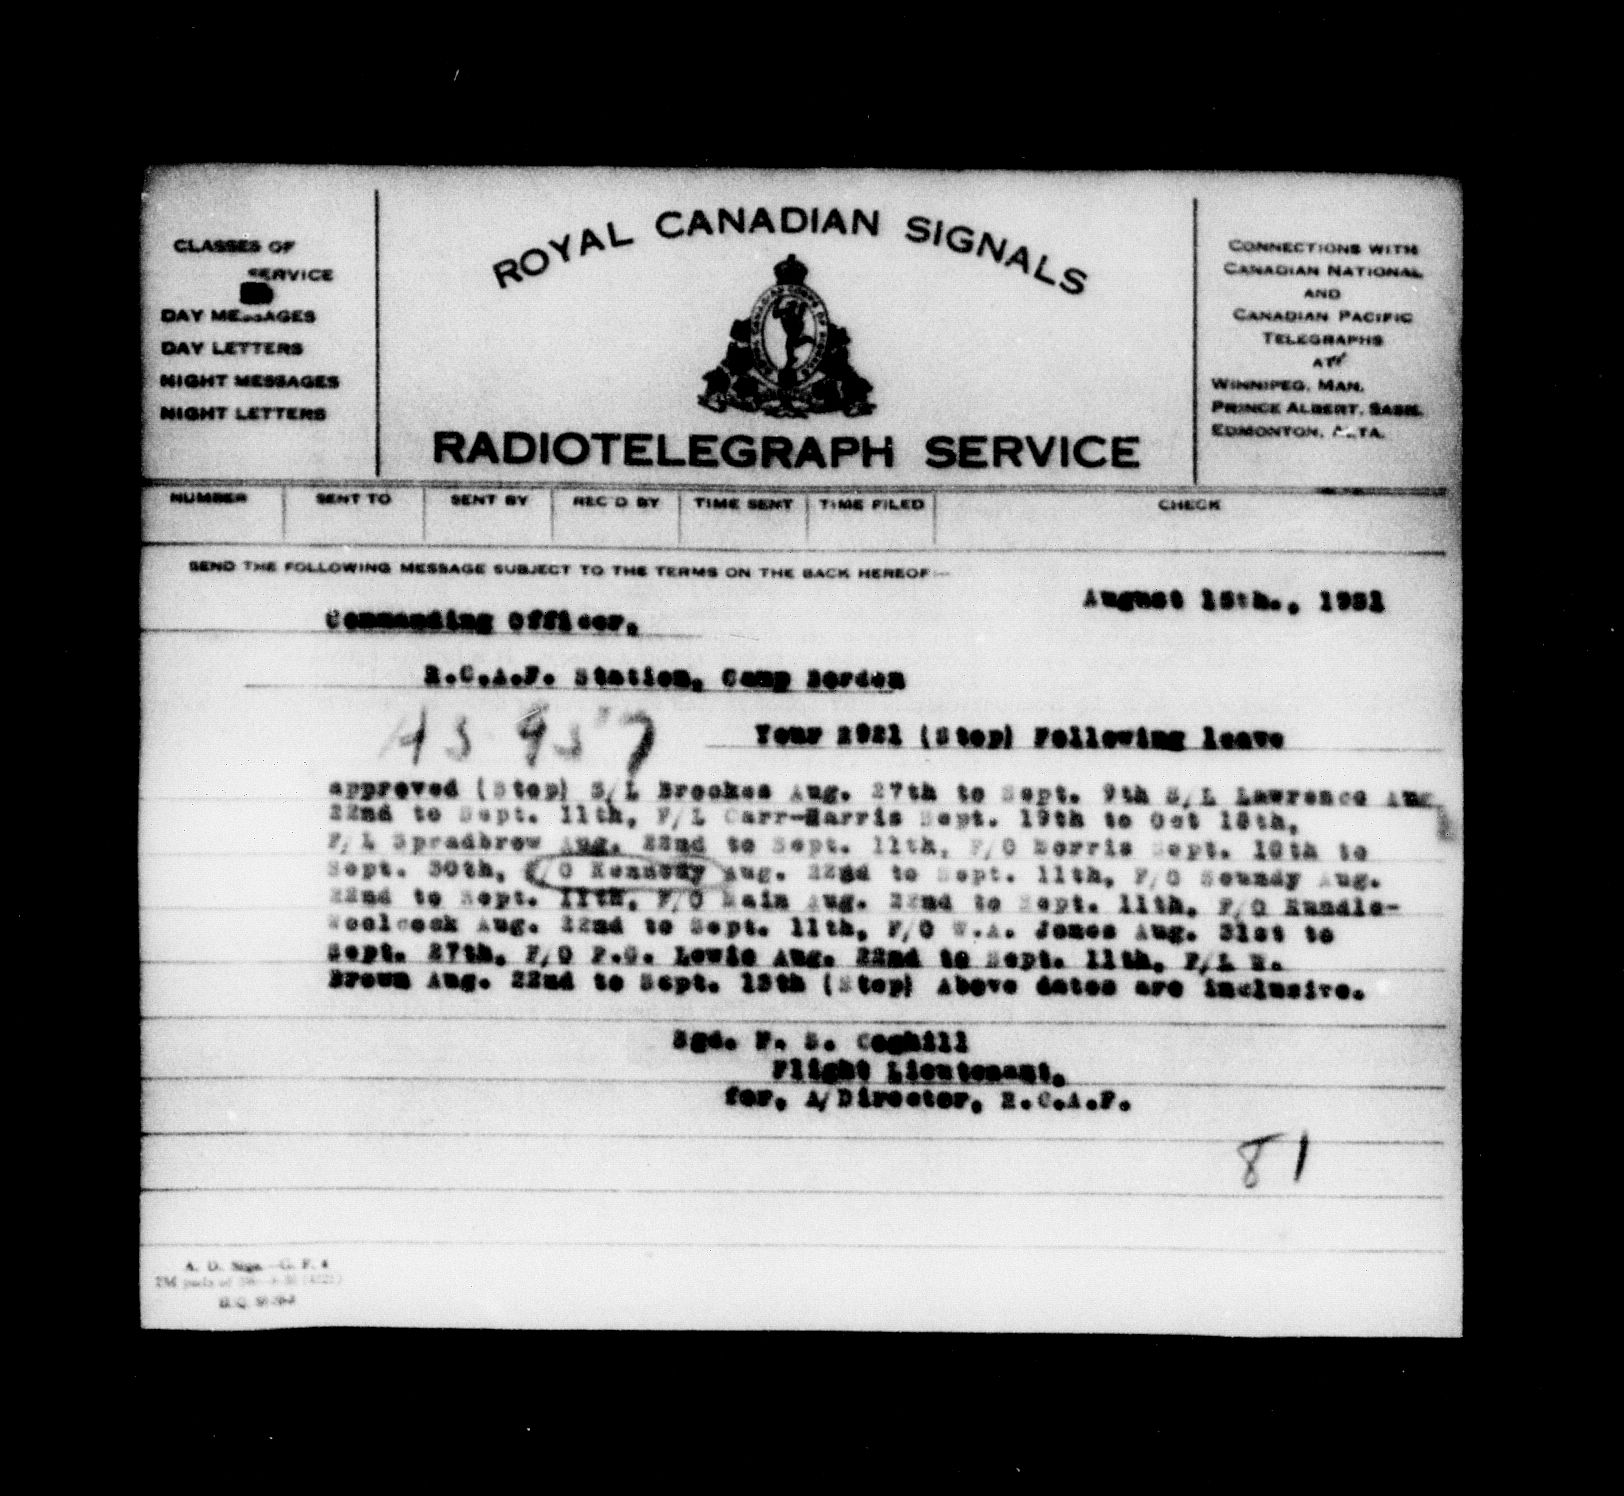 CLASSES OF
SERVICE
DAY MESSAGES
DAY LETTERS
NIGHT MESSAGES
NIGHT LETTERS
ROYAL CANADIAN SIGNALS
RADIOTELEGRAPH SERVICE
CONNECTIONS WITH
CANADIAN NATIONAL
AND
CANADIAN PACIFIC
TELEGRAPHS
AT
WINNIPEG, MAN.
PRINCE ALBERT, SASK.
EDMONTON, ALTA.
NUMBER SENT TO SENT BY REC'D BY TIME SENT TIME FILED CHECK
SEND THE FOLLOWING MESSAGE SUBJECT TO THE TERMS ON THE BACK HEREOF:—
August 15th., 1931
Commanding Officer,
R.C.A.F. Station, Camp Borden
Your 2921 (Stop) Following leave
approved (Stop) S/L Brookes Aug. 27th to Sept. 9th S/L Lawrence Aug.
22nd to Sept. 11th, F/L Carr-Harris Sept. 19th to Oct 18th,
F/L Spradbrow Aug. 22nd to Sept. 11th, F/O Morris Sept. 10th to
Sept. 30th, F/O Kennedy Aug. 22nd to Sept. 11th, F/O Soundy Aug.
22nd to Sept. 11th, F/O Main Aug. 22nd to Sept. 11th, F/O Rundle-
Woolcock Aug. 22nd to Sept. 11th, F/O W.A. Jones Aug. 31st to
Sept. 27th, F/O Lewis Aug. 22nd to Sept. 11th, F/L
Brown Aug. 22nd to Sept. 13th (Stop) Above dates are inclusive.
Sgd. F. S. Coghill
Flight Lieutenant,
for, A/Director, R.C.A.F.
81
A. D. Sigs.—G. F. 4
H.Q.